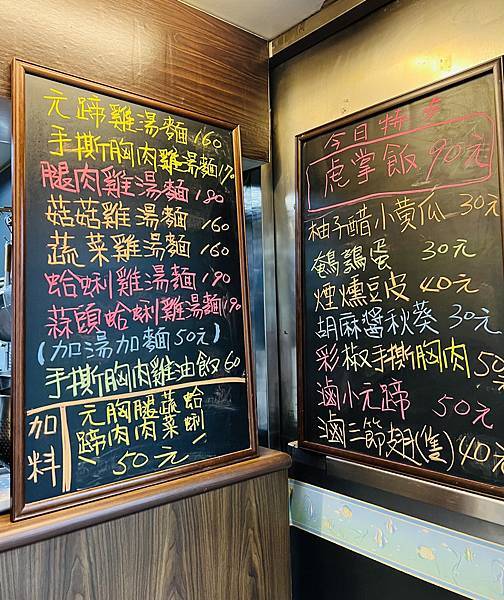 元蹄雞湯麵160
手撕胸肉雞湯麵170
腿肉雞湯麵190
菇菇雞湯麵160
蔬菜雞湯麵160
蛤蜊雞湯麵190
蒜頭蛤蜊雞湯麵190
(加湯加麵50元)
手撕胸肉雞油飯60
加料
元蹄 胸肉 腿肉 蔬菜 蛤蜊
50元
今日特
虎掌飯90元
柚子醋小黃瓜30元
鵪鶉蛋 30元
煙燻豆皮40元
胡麻醬秋葵30元
彩椒手撕胸肉50
滷小元蹄 50元
滷二節翅(隻)40元